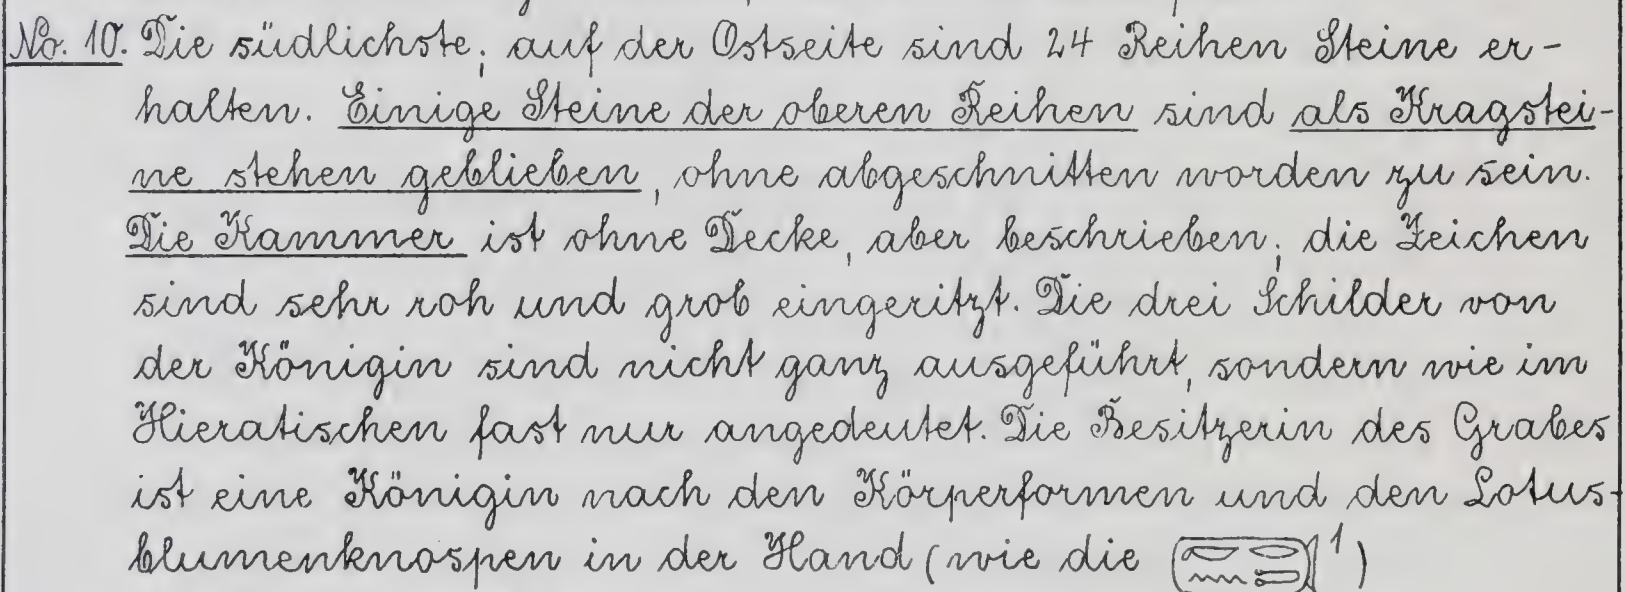 No. 10. Die südlichste; auf der Ostseite sind 24 Reihen Steine er-
halten. Einige Steine der oberen Reihen sind als Kragstei-
ne stehen geblieben, ohne abgeschnitten worden zu sein.
Die Kammer ist ohne Decke, aber beschrieben; die Zeichen
sind sehr roh und grob eingeritzt. Die drei Schilder von
der Königin sind nicht ganz ausgeführt, sondern wie im
Hieratischen fast nur angedeutet. Die Besitzerin des Grabes
ist eine Königin nach den Körperformen und den Lotus-
blumenknospen in der Hand (wie die 1)